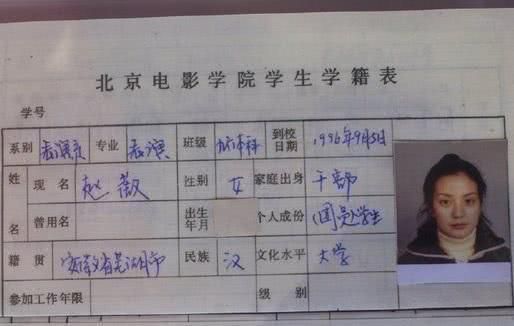 北京电影学院学生学籍表
学号
系别 表演系 专业 表演 班级 96本科 到校日期 1996年9月5日
姓名 现名 赵薇 性别 女 家庭出身 干部
曾用名 出生年月 个人成份 学生
籍贯 安徽省芜湖市 民族 汉 文化水平 大学
参加工作年限 级别